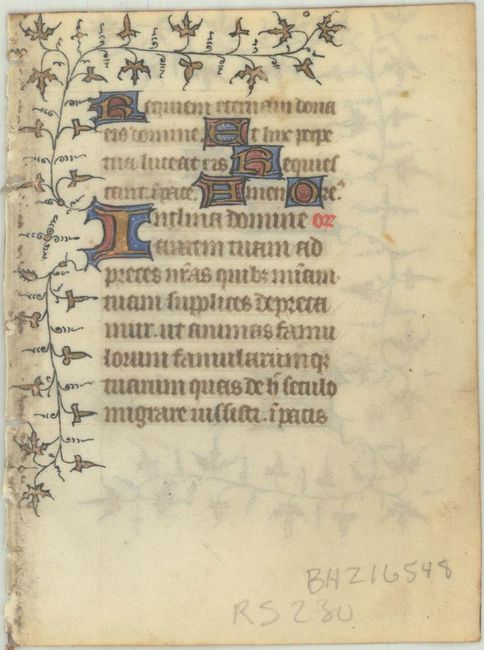 Requiem eternam dona
eis domine. Et lux perpe
tua luceat eis Requies
cant ī pace. Amen Ore.
Inclina domine or
aurem tuam ad
preces nr̄as quibꝫ mīam
tuam supplices depreca
mur. ut animas famu
lorum famularumqꝫ
tuarum quas de h̄ seculo
migrare iussisti. ī pacis
BHZ16548
RS 230